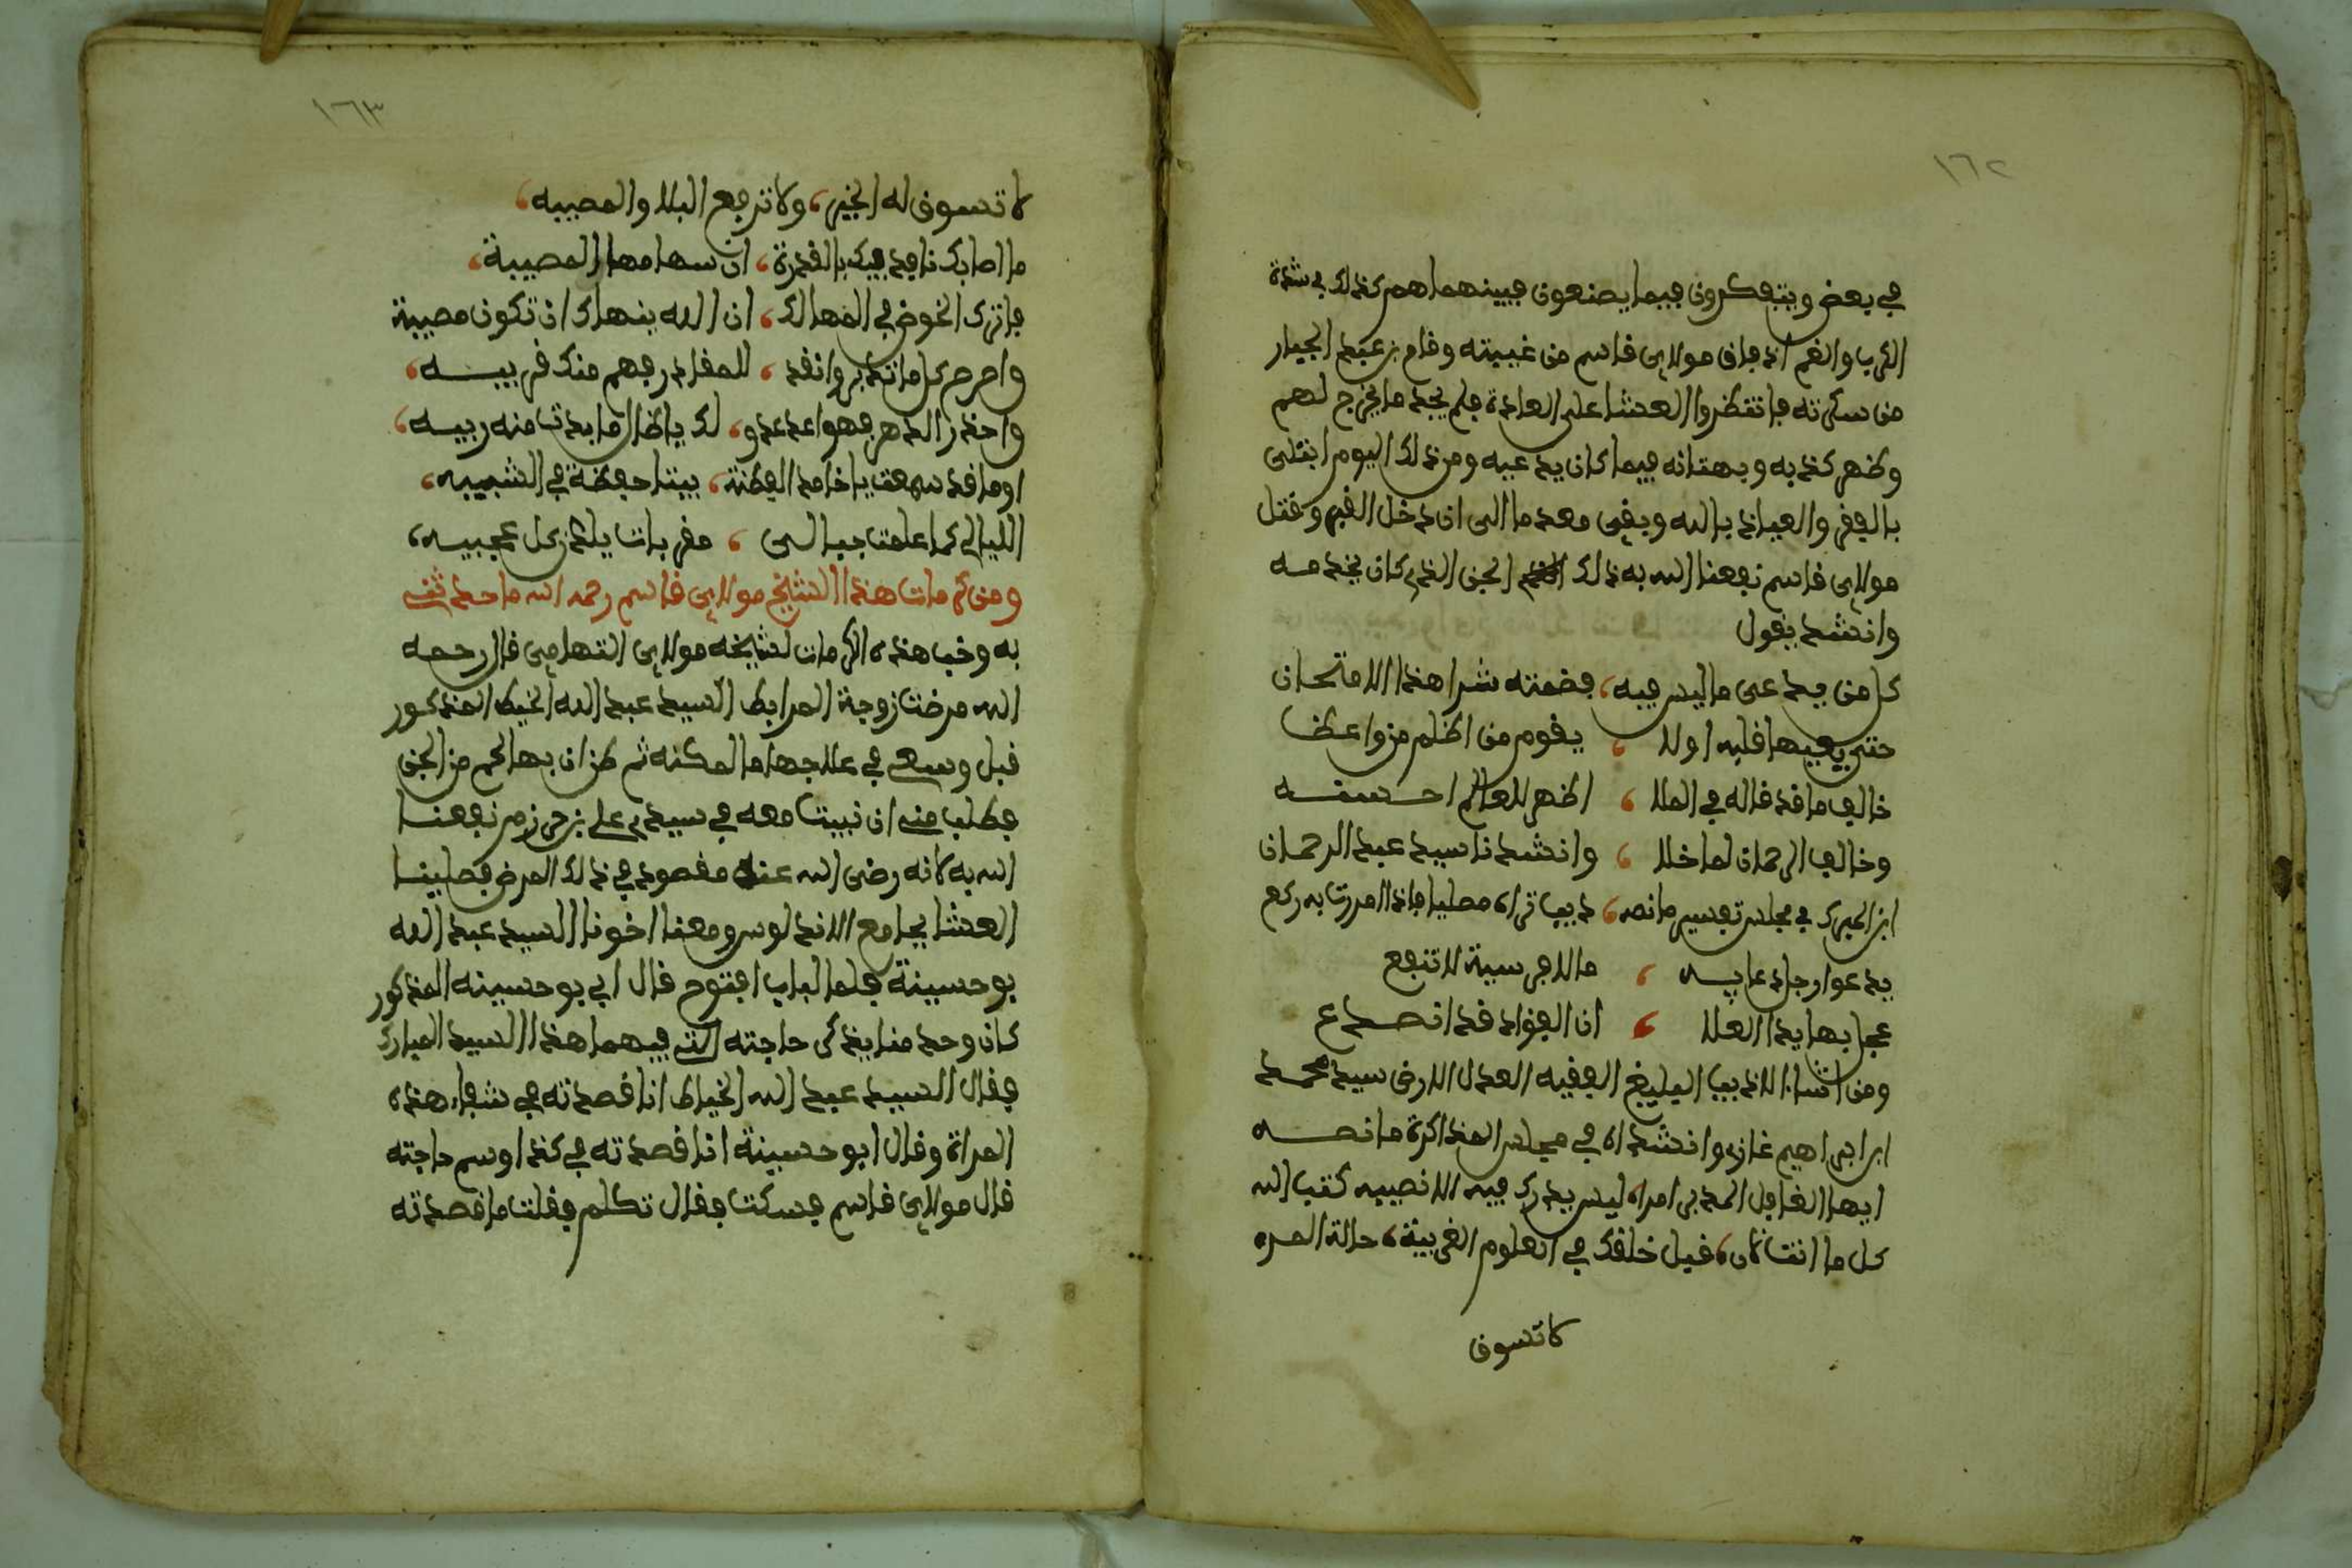 ١٦٢
في بعض ويتفكرون فيما يصنعون فبينهما هم كذلك في شدة
الكرب والغم اذ فاق مولاي قاسم من غيبته وقام بن عبد الجبار
من سكرته فانتظروا العشا على العادة فلم يجد ما يخرج لهم
وظهر كذبه وبهتانه فيما كان يدعيه ومن ذلك اليوم ابتلى
بالفقر والعياذ بالله وبقي معدما الى ان دخل القبر وقتل
مولاي قاسم نفعنا الله به ذلك الجن الذي كان يخدمه
وانشد يقول
كل من يدعى ما ليس فيه، فضحته شرا هذا الامتحان
اولا ، يقوم من اظلم من واعظا
خالف ما قد قاله في الملا ، اظهر للعالم احسنه
وخالف الرحمان لما خلا ، وانشدنا سيد عبد الرحمان
ابن في مجلس تفسير ما نصه، ذيب تراه مصليا فاذا مررت به ركع
يدعوا وجل دعايه ، ما للفرسية لا تنفع
عجل بها يذا العلا ، ان الفؤاد قد انصدع
ومن انشاء الاذيب البليغ الفقيه العدل الارضى سيد محمد
ابن ابراهيم غازي وانشداه في مجلس المذاكرة ما نصه
ايها الغافل المدبر امراه ليس يدرك فيه الا نصيبه كتب الله
كل ما انت ، قبل خلقك في العلوم الغريبة، حالة المره
لا تسوق
١٦٣
لا تسوق له الخير، ولا ترفع البلا والمصيبه،
ما اصابك نافد فيك بالقدرة، ان سهامها المصيبة،
فاترك الخوض في المهالك، ان الله ينهاك ان تكون مصيبة
واصرم كل ما تدبر وانفد ، للمقادر فهم منك قريبه،
واحذر الدهر فهو اعد عدو، لك يا ظال ما بدت منه ريبه،
اوما قد سمعت يا خامد الفطنة، بيتا حفظة في الشبيبه،
الليالي كما علمت حبالى ، مقربات يلدن كل عجيبه،
ومن كرمات هذا الشيخ مولاي قاسم رحمه الله ما حدثنى
به وخب هذه الكرمات لشيخه مولاي التهامي قال رحمه
الله مرضت زوجة المرابط السيد عبد الله الخيط المذكور
قبل وسعى في علاجها ما امكنه ثم ظن ان بها الم من الجن
فطلب منى ان نبيت معه في سيدي علي بن حرزم نفعنا
الله به لانه رضى الله عنه مقصود في ذلك المرض فصلينا
العشا بجامع الاندلوس ومعنا اخونا السيد عبد الله
بوحسينة فلما الباب افتوح قال اي بوحسينه المذكور
كان وحد منا يذكر حاجته التى فيهما هذا السيد المبارك
فقال السيد عبد الله الخياط انا قصدته في شفاء هذه
المراة وقال ابوحسينة انا قصدته في كذا وسم حاجته
قال مولاي قاسم فسكت فقال تكلم فقلت ما قصدته